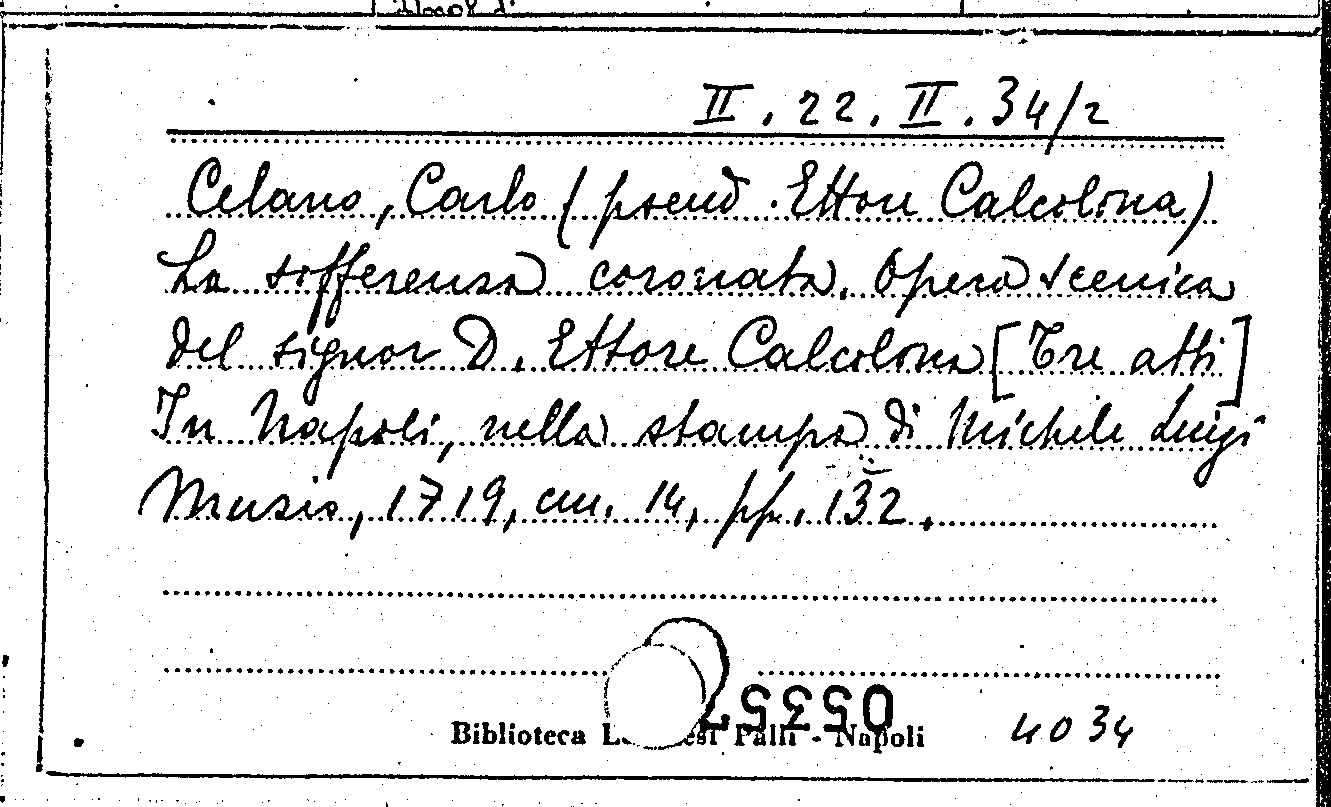 II.22.II.34/2
Celano, Carlo (pseud. Ettore Calcolona)
La sofferenza coronata. Opera scenica
del signor D. Ettore Calcolona [Tre atti]
In Napoli, nella stampa di Michele Luigi
Muzio, 1719, cm. 14, pp. 132.
Biblioteca Palli - Napoli
4034